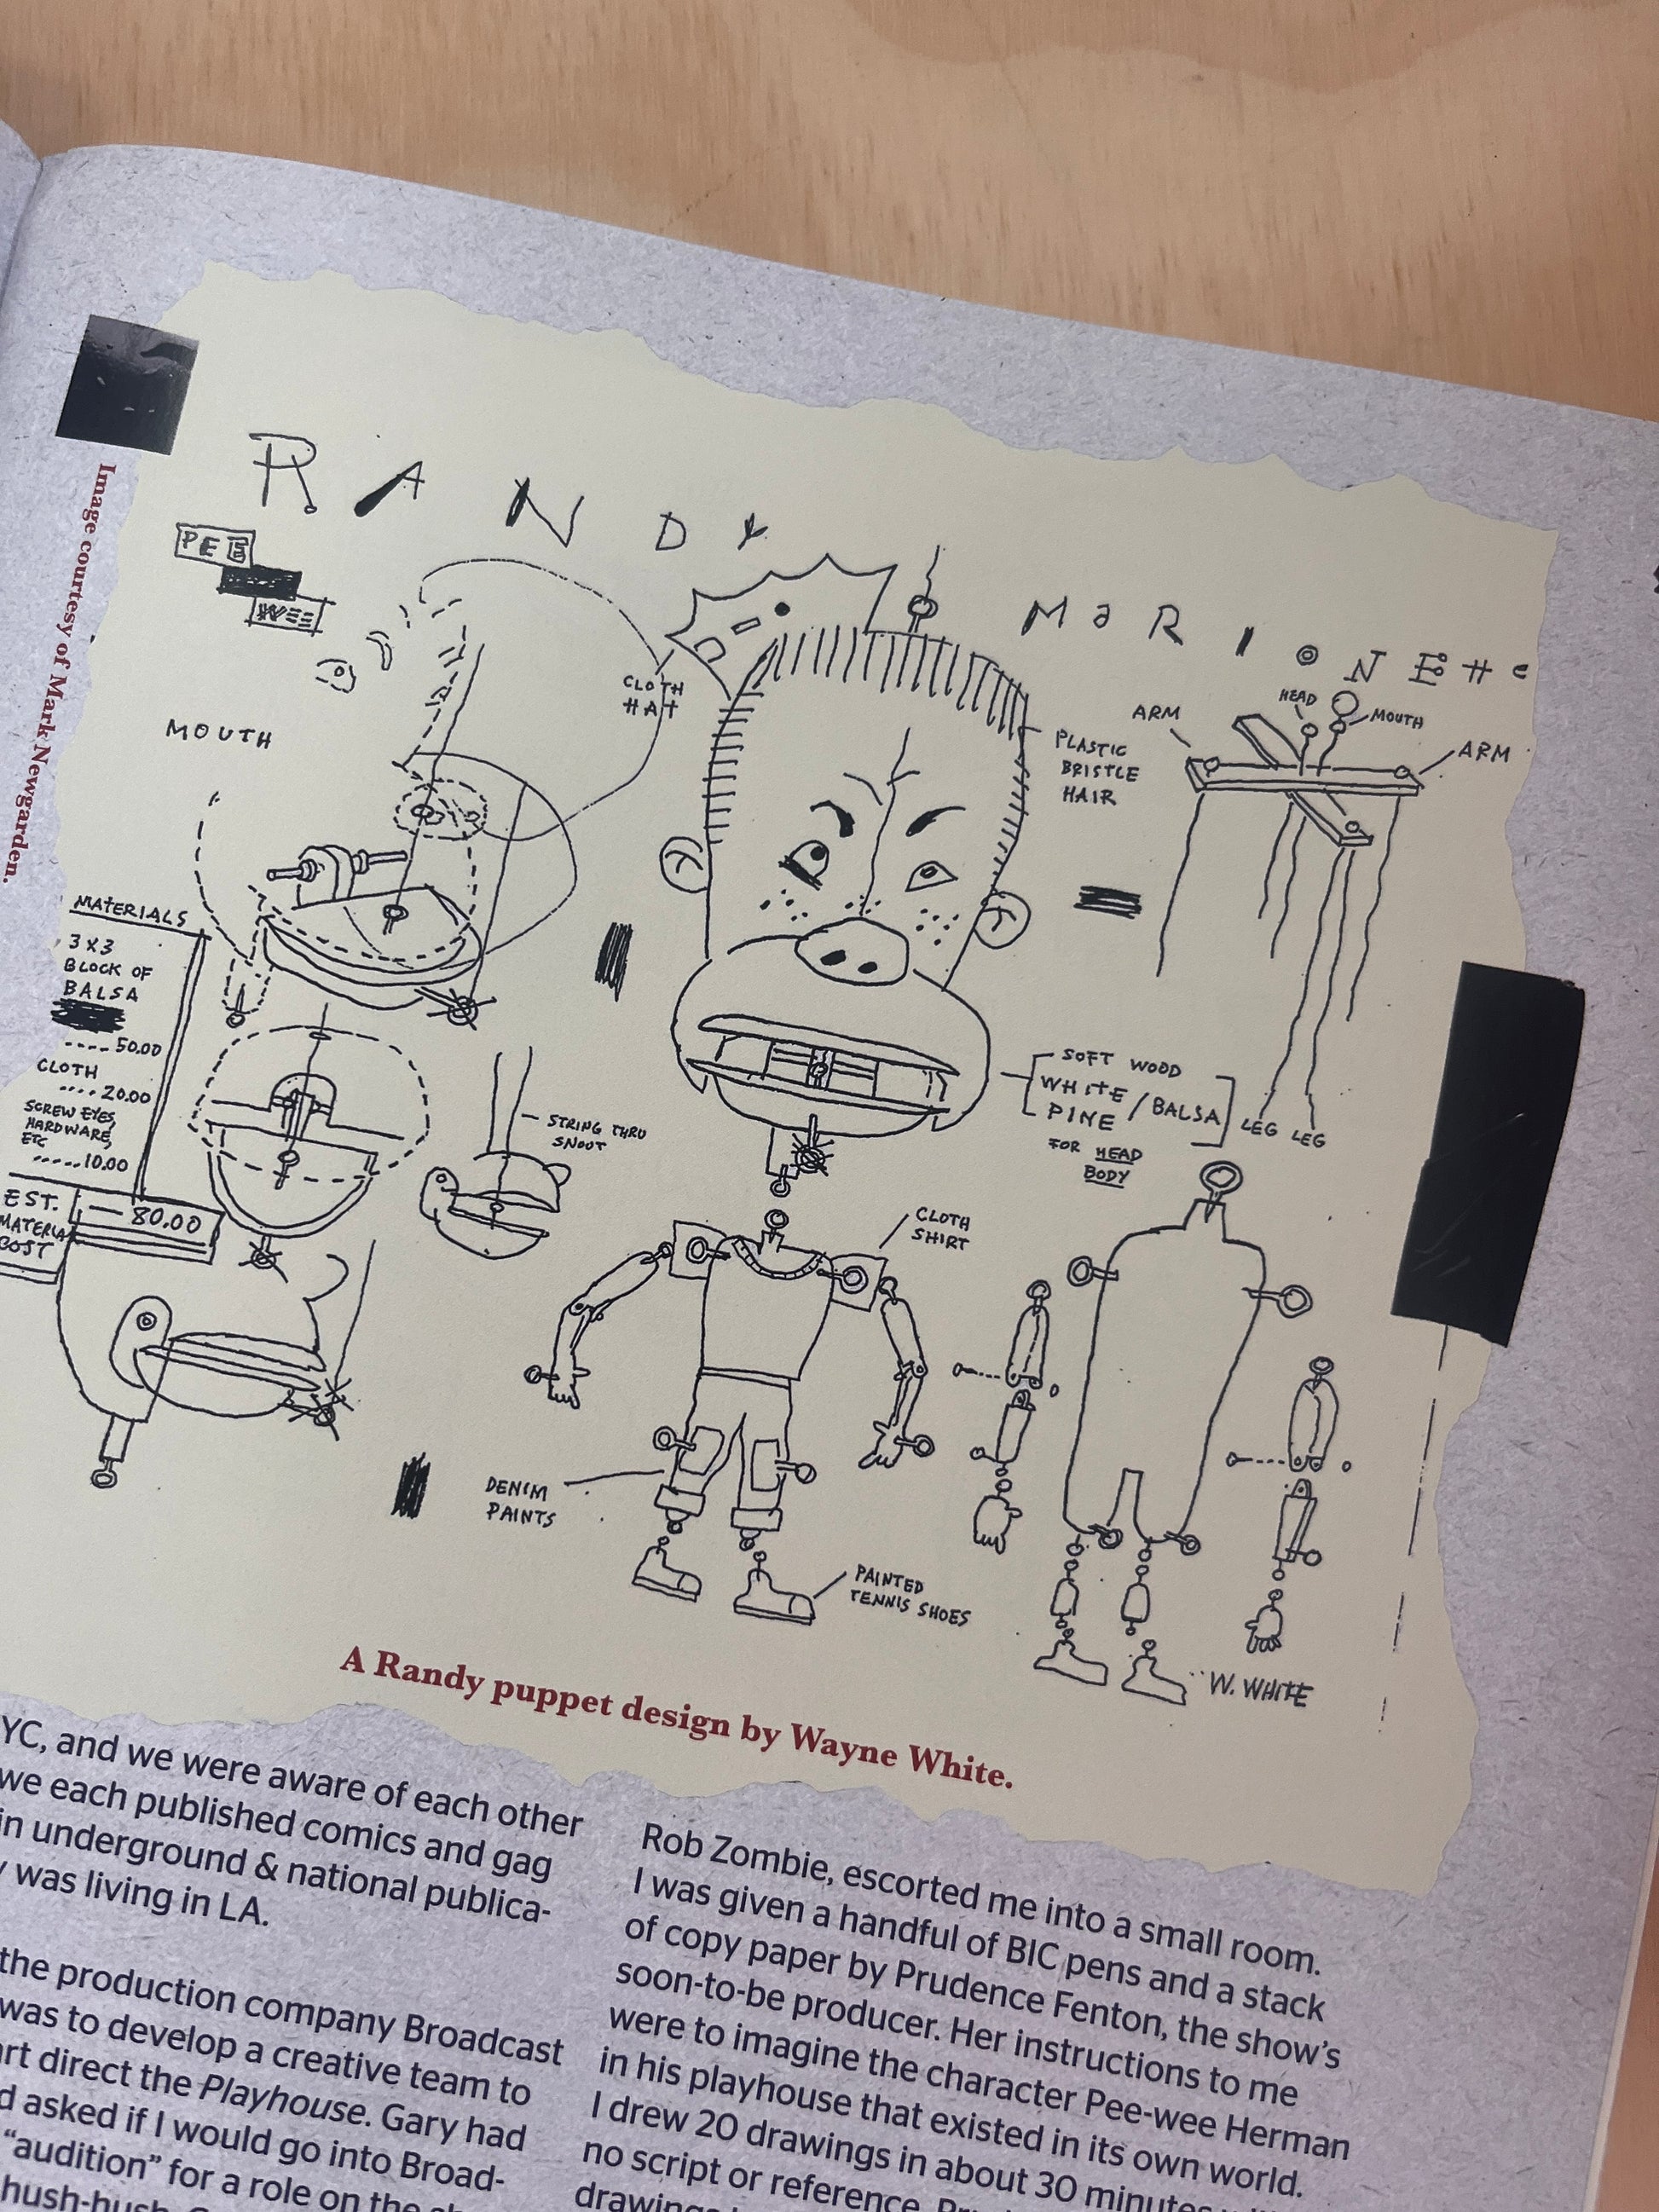 RANDY MaRIONEtte
PEE
WEE
MOUTH
CLOTH
HAT
PLASTIC
BRISTLE
HAIR
ARM
HEAD
MOUTH
ARM
LEG LEG
Image courtesy of Mark Newgarden.
MATERIALS
3 X 3
BLOCK OF
BALSA
---- 50.00
CLOTH
.... 20.00
SCREW EYES,
HARDWARE,
ETC
..... 10.00
EST. — 80.00
MATERIAL
COST
STRING THRU
SNOUT
SOFT WOOD
WHITE / BALSA
PINE
FOR HEAD
BODY
CLOTH
SHIRT
DENIM
PAINTS
PAINTED
TENNIS SHOES
W. WHITE
A Randy puppet design by Wayne White.
YC, and we were aware of each other
we each published comics and gag
in underground & national publica-
y was living in LA.
the production company Broadcast
was to develop a creative team to
art direct the Playhouse. Gary had
d asked if I would go into Broad-
"audition" for a role on the
hush-hush.
Rob Zombie, escorted me into a small room.
I was given a handful of BIC pens and a stack
of copy paper by Prudence Fenton, the show's
soon-to-be producer. Her instructions to me
were to imagine the character Pee-wee Herman
in his playhouse that existed in its own world.
I drew 20 drawings in about 30 minutes
no script or reference.
drawings